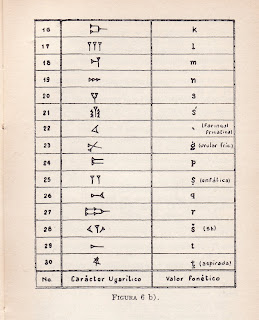 16 𐎋 k
17 𐎍 l
18 𐎎 m
19 𐎐 n
20 𐎒 s
21 𐎝 ś
22 𐎓 ‛ (faringal fricativa)
23 𐎙 ġ (uvular fric.)
24 𐎔 p
25 𐎕 ṣ (enfática)
26 𐎖 q
27 𐎗 r
28 𐎌 š (sh)
29 𐎚 t
30 𐎘 ṯ (aspirada)
No. Carácter Ugarítico Valor fonético
FIGURA 6 b).